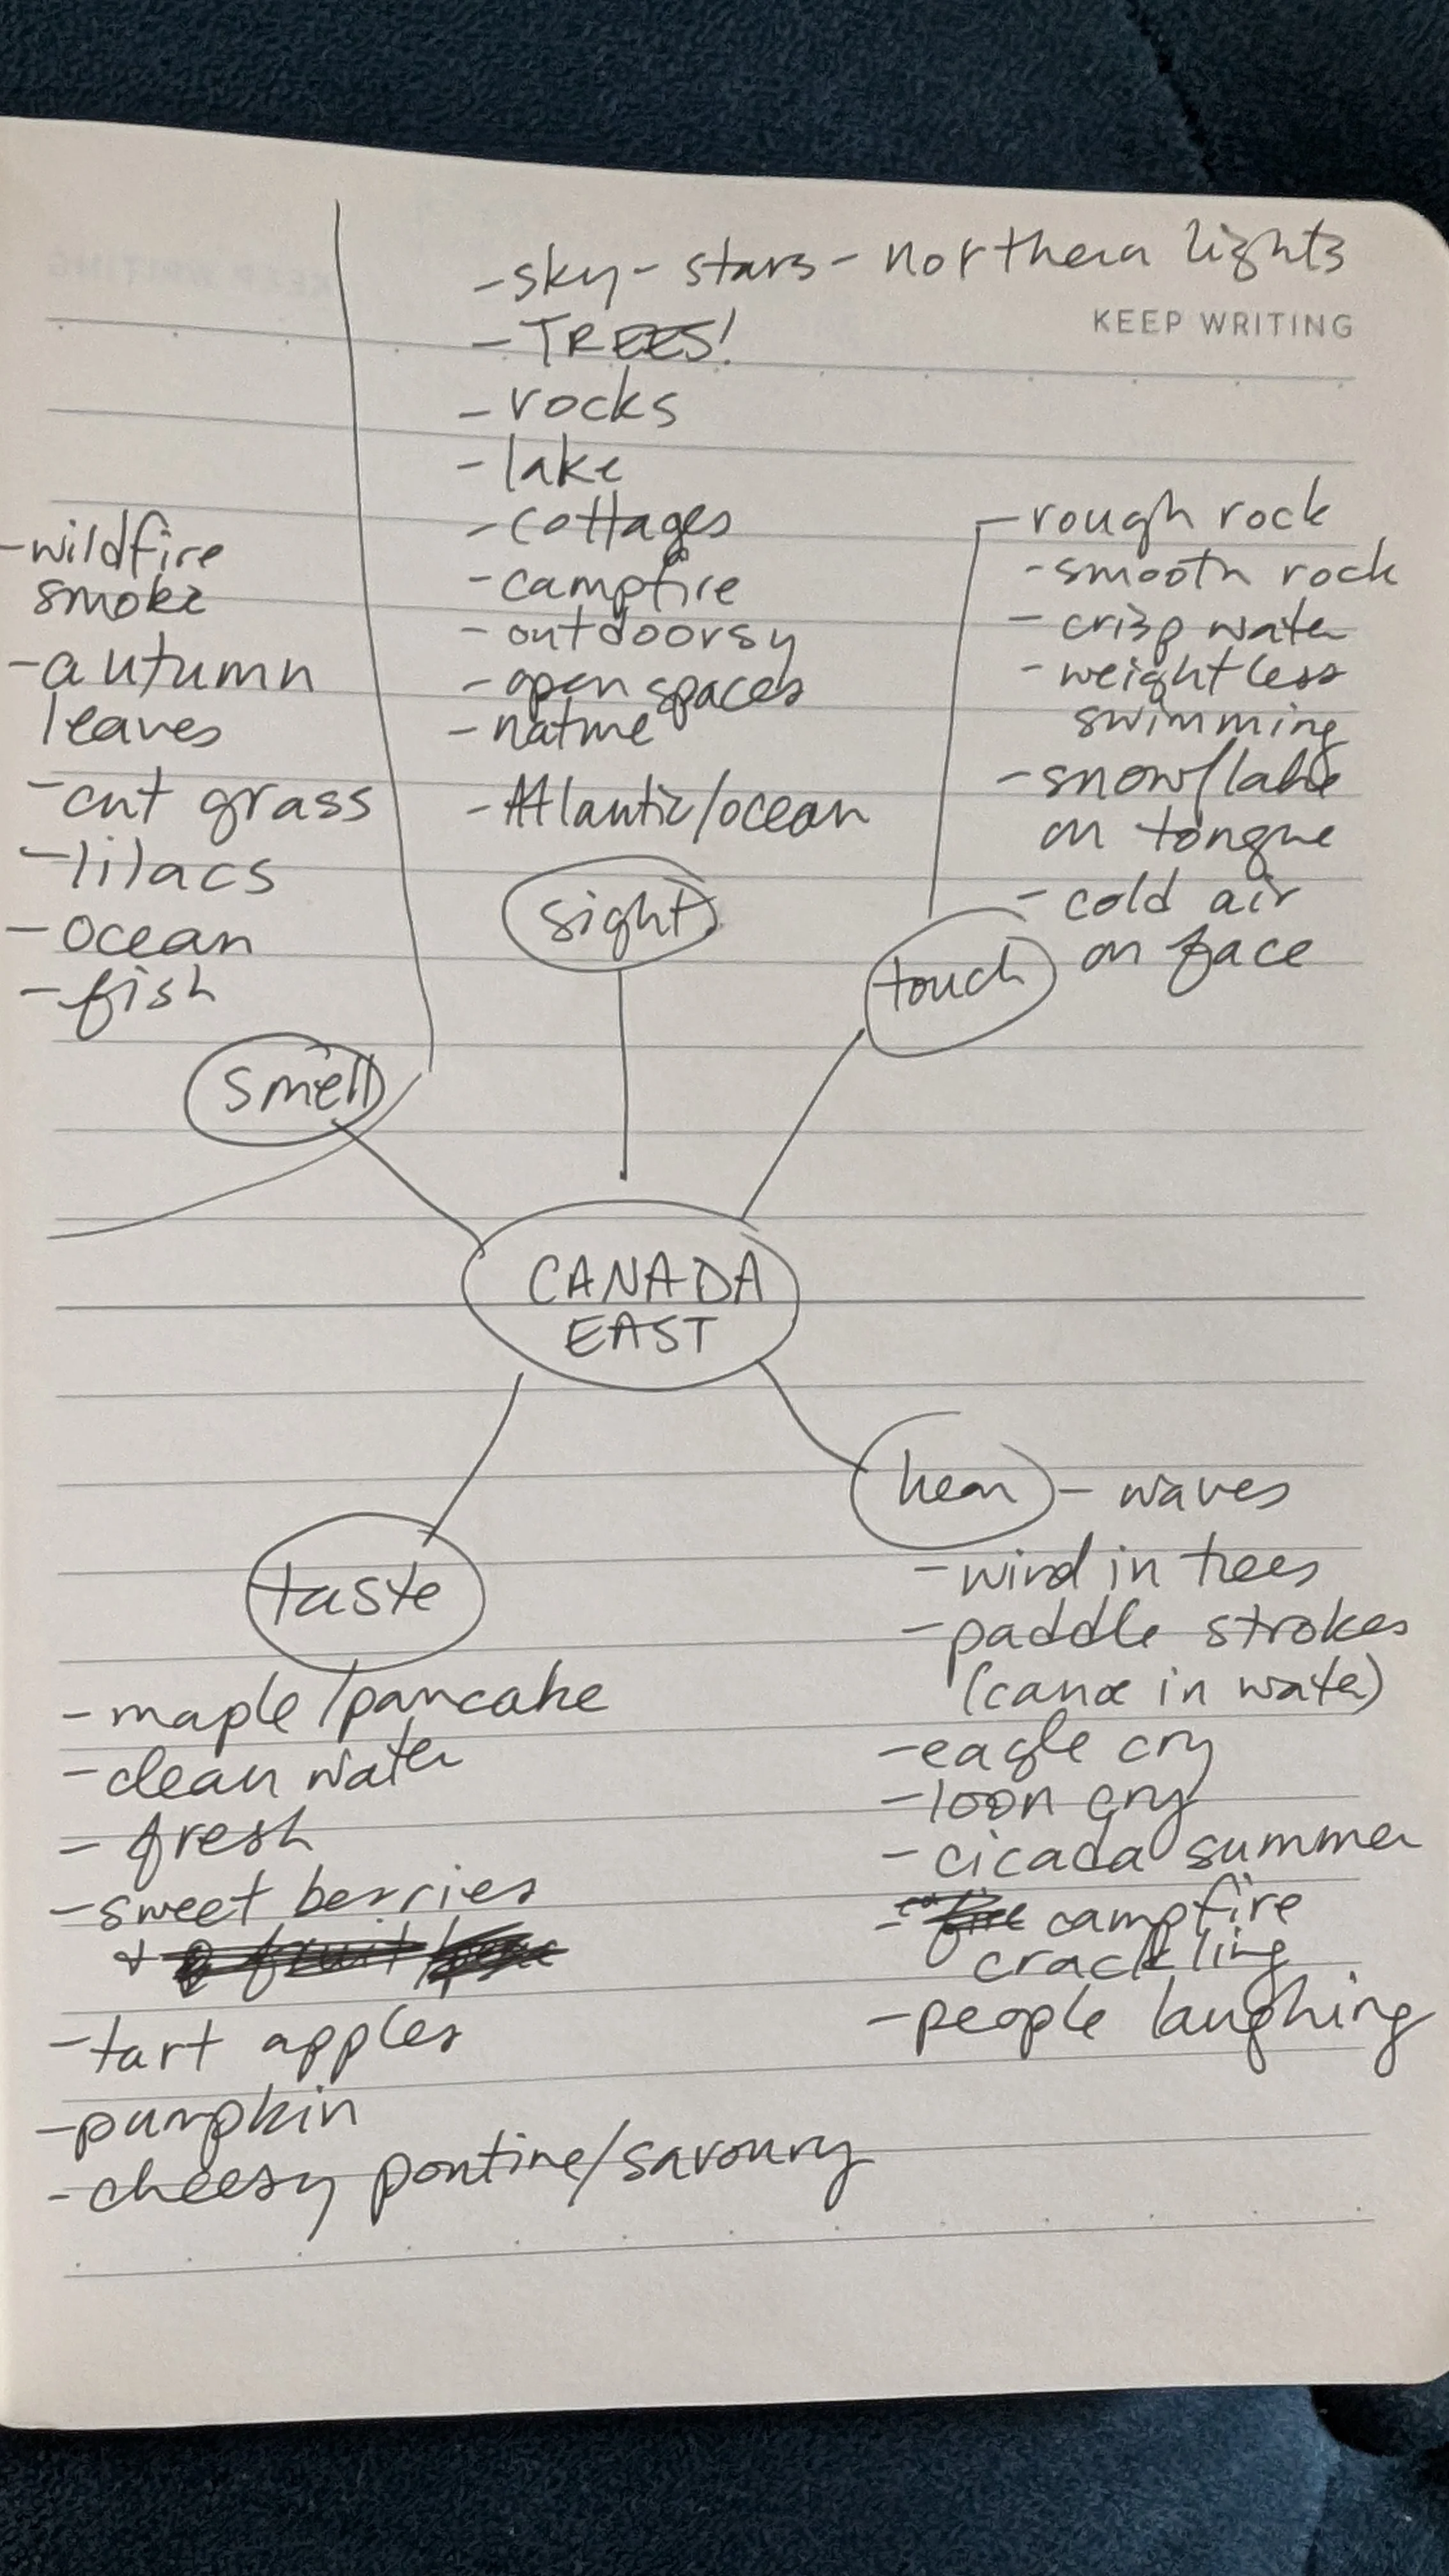 - sky - stars - northern lights
KEEP WRITING
- TREES!
- rocks
- lake
- cottages
- campfire
- outdoorsy
- open spaces
- nature
- Atlantic/ocean
sight
- wildfire
smoke
- autumn
leaves
- cut grass
- lilacs
- ocean
- fish
smell
- rough rock
- smooth rock
- crisp water
- weightless
swimming
- snowflake
on tongue
- cold air
on face
touch
CANADA
EAST
hear - waves
- wind in trees
- paddle strokes
(canoe in water)
- eagle cry
- loon cry
- cicada summer
- campfire
crackling
- people laughing
taste
- maple/pancake
- clean water
- fresh
- sweet berries
- tart apples
- pumpkin
- cheesy poutine/savoury